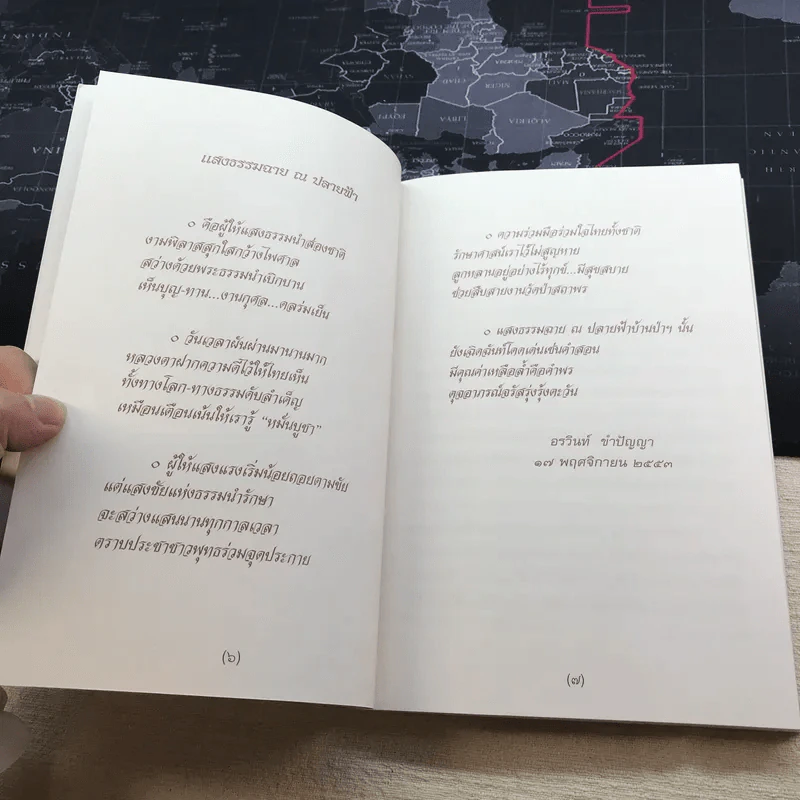 แสงธรรมฉาย ณ ปลายฟ้า
๐ คือผู้ให้แสงธรรมนำส่องชาติ
งามพิลาสสุกใสกว้างไพศาล
สว่างด้วยพระธรรมนำเบิกบาน
เห็นบุญ-ทาน...งานกุศล...ดลร่มเย็น
๐ วันเวลาผันผ่านมานานมาก
หลวงตาฝากความดีไว้ให้ไทยเห็น
ทั้งทางโลก-ทางธรรมดับลำเค็ญ
เหมือนเดือนเพ็ญเน้นให้เรารู้ “หมั่นบูชา”
๐ ผู้ให้แสงแรงเริ่มน้อยถอยตามขัย
แต่แสงชัยแห่งธรรมนำรักษา
จะสว่างแสนนานทุกกาลเวลา
ตราบประชาชาวพุทธร่วมจุดประกาย
(๖)
๐ ความร่วมมือร่วมใจไทยทั้งชาติ
รักษาศาสน์เราไว้ไม่สูญหาย
ลูกหลานอยู่อย่างไร้ทุกข์...มีสุขสบาย
ช่วยสืบสายงานวัดป่าสถาพร
๐ แสงธรรมฉาย ณ ปลายฟ้าบ้านป่าฯ นั้น
ยังเฉิดฉันท์โดดเด่นเช่นคำสอน
มีคุณค่าเหลือล้ำคือคำพร
ดุจอาภรณ์จรัสรุ่งรุ้งตะวัน
อรวินท์ ขำปัญญา
๑๗ พฤศจิกายน ๒๕๕๓
(๗)